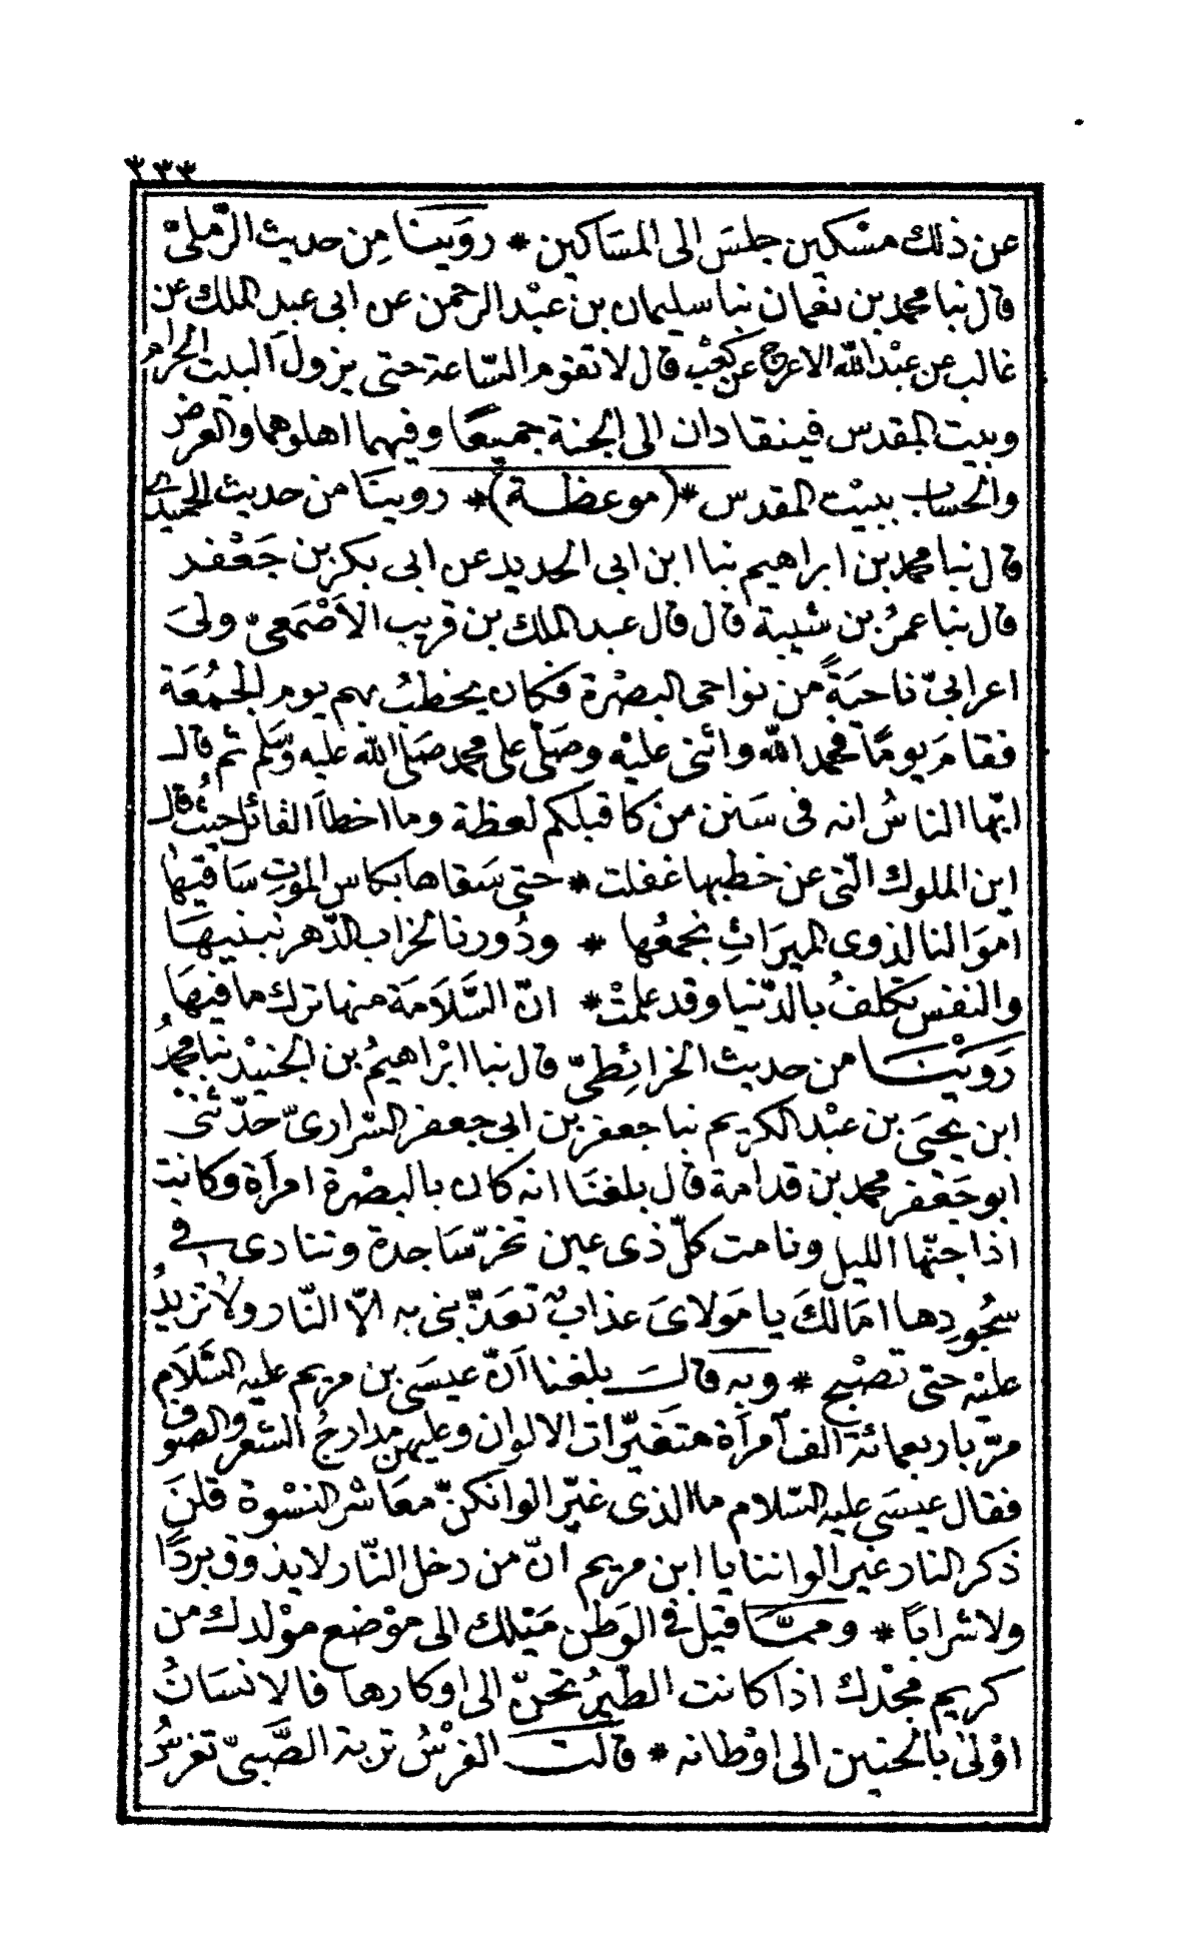 ٣٣٣
عن ذلك مسْكين جلسَ الى المسَاكين * روَينا مِن حديث الرّمليّ
قال نبا محمد بن نعمان نبا سليمان بن عبْد الرحمن عن ابى عبد الملك عن
غالب عن عبْد الله الاعرج عن كعْب قال لا تقوم السّاعة حتى يزول البيت الحرام
وبيت المقدس فينقادان الى الجنة جميعًا وفيهما اهلوهما والعرض
والحساب ببيْت المقدس * (موعظة) * روينَا من حديث الحميدى
قال نبا محمد بن ابراهيم نبا ابن ابى الحديد عن ابى بكر بن جَعْفر
قال نبا عمرُ بن شيبة قال قال عبد الملك بن قريب الاَصْمَعىّ ولىَ
اعرابىّ ناحيَةً من نواحى البصْرة فكان يخطبُ بهم يوم الجمُعَة
فقامَ يومًا فحمد الله واثنى عليْه وصَلّى على محمد صَلى الله عليه وسَلم ثم قال
ايّها الناسُ انه فى سَنن من كا قبلكم لعظة وما اخطاَ القائل حيثُ قال
اين الملوك الّتى عن خطبها غفلت * حتى سَقاها بكاس الموتِ سَاقيهَا
امْوَالنا لذوى الميرَاثِ نجمعُها * ودُورنا لخراب الدّهر نبنيهَا
والنفس تكلفُ بالدّنيا وقد علمتْ * انّ السَّلاَمَة منها ترك ما فيهَا
رَوَيْنَا من حديث الخرائِطىّ قال نبا ابْراهيمُ بن الجنيْد نبا محمدُ
ابن يحيَى بن عبْد الكريم نبا جعفر بن ابى جعفر السّرارىّ حدّثنىْ
ابو جَعْفر محمد بن قدامة قال بلغنَا انه كان بالبصْرة امرَأة وكانت
اذا جنّها الليل ونامت كلّ ذى عين تخرّ سَاجدة وتنادى فى
سجُودِها امَالكَ يا مَولاىَ عذابٌ تعَذّبنى به الاّ النّار ولا تزيدُ
عليْه حتى تصْبح * وبه قالت بلغنا اَنّ عيسَى بن مريم عليه السَّلَام
مرّ باربعمائة الف اَمرأة متغَيّرات الالوان وعليهن مدارعُ الشعر والصوف
فقال عيسَى عليه السّلام ما الذى غيّر الوانكنّ معَاشر النسْوة قلنَ
ذكر النار غير الواننا يا ابن مريم انّ من دخل النّار لا يذوق بردًا
ولا شرابًا * وممّا قيل فى الوَطن مَيْلك الى موْضع موْلدك من
كريم مَحْتدك اذا كانت الطّيرُ تحنّ الى اوكارها فالانسَانُ
اوْلىٰ بالحنين الى اوْطانه * قالت الفرْسُ تربة الصَّبىّ تغرسُ